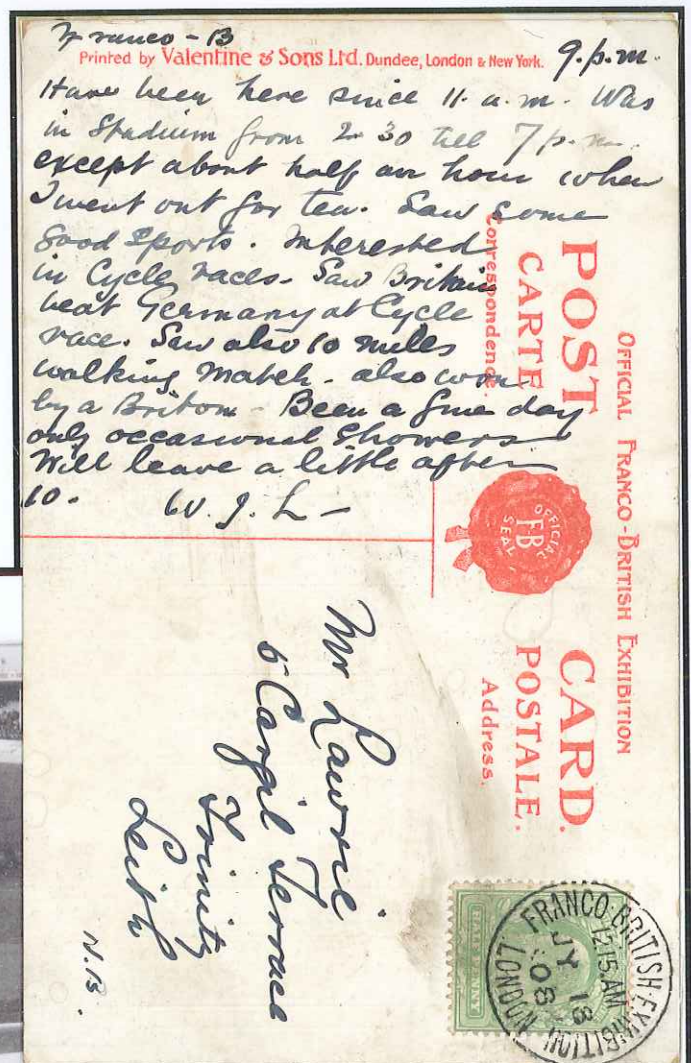 Franco-B
9.p.m.
Printed by Valentine & Sons Ltd. Dundee, London & New York.
Have been here since 11.a.m. Was
in Stadium from 2.30 till 7 p.m.
except about half an hour when
I went out for tea. Saw some
good sports. Interested
in Cycle races. Saw Britain
beat Germany at Cycle
race. Saw also 10 miles
walking match. also won
by a Briton - Been a fine day
only occasional showers
Will leave a little after
10. W.J.L-
OFFICIAL FRANCO-BRITISH EXHIBITION
POST CARD.
CARTE POSTALE.
Correspondence.
Address.
OFFICIAL
F-B
SEAL
Mr Lawrie
5 Cargil Terrace
Trinity
Leith
N.B.
HALFPENNY
FRANCO-BRITISH-EXHIBITION LONDON
12.15.AM
JY 18
08